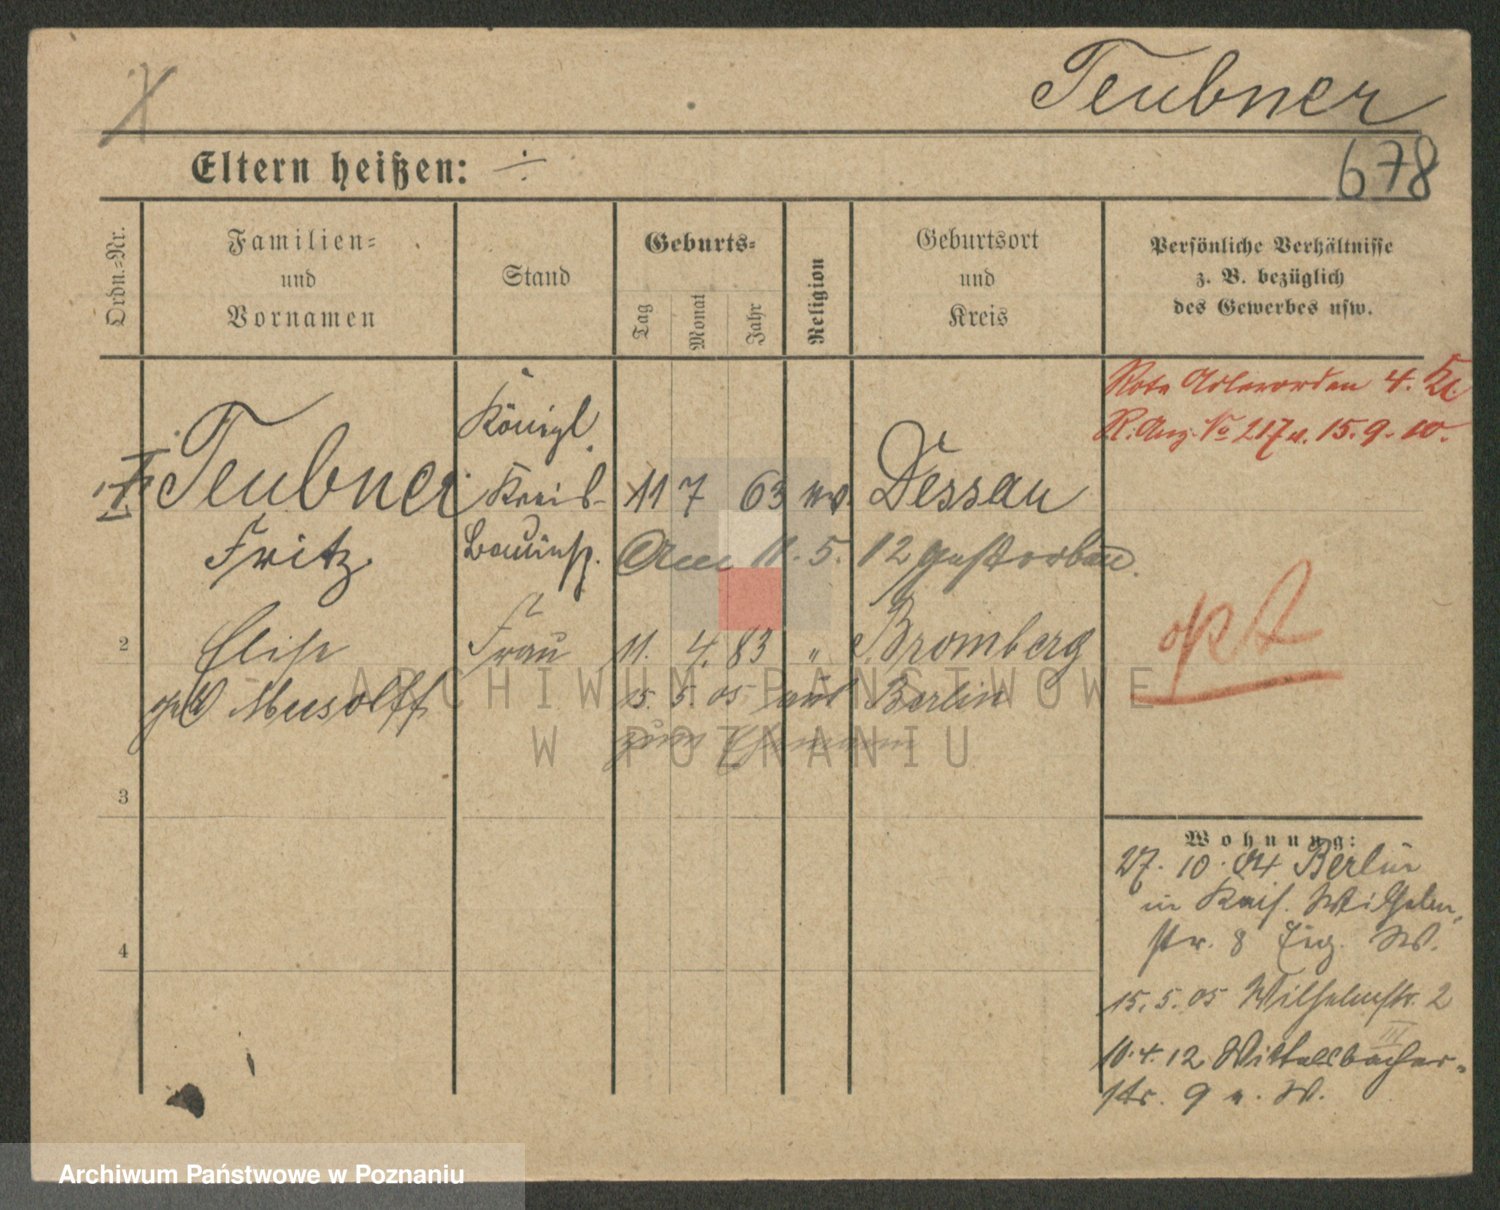 Teubner
678
Eltern heißen: ÷
Ordn.-Nr.
Familien-
und
Vornamen
Stand
Geburts-
Tag
Monat
Jahr
Religion
Geburtsort
und
Kreis
Persönliche Verhältnisse
z. B. bezüglich
des Gewerbes usw.
Rote Adlerorden 4. Kl.
R. Anz. No 217 v. 15.9.10.
Teubner
Fritz
Königl.
Kreis-
Bauinsp.
11 7 63 ev. Dessau
Am 11. 5. 12 gestorben.
2
Elise
geb Musolff
Frau
11. 4. 83 " Bromberg
15. 5. 05 aus Berlin
zum Ehemann
3
4
Wohnung:
27. 10. 04 Berlin
in Kais. Wilhelm
str. 8 Eig. W.
15. 5. 05 Wilhelmstr. 2
III
10. 4. 12 Wittelsbacher-
str. 9 e. W.
ARCHIWUM PAŃSTWOWE
W POZNANIU
Archiwum Państwowe w Poznaniu